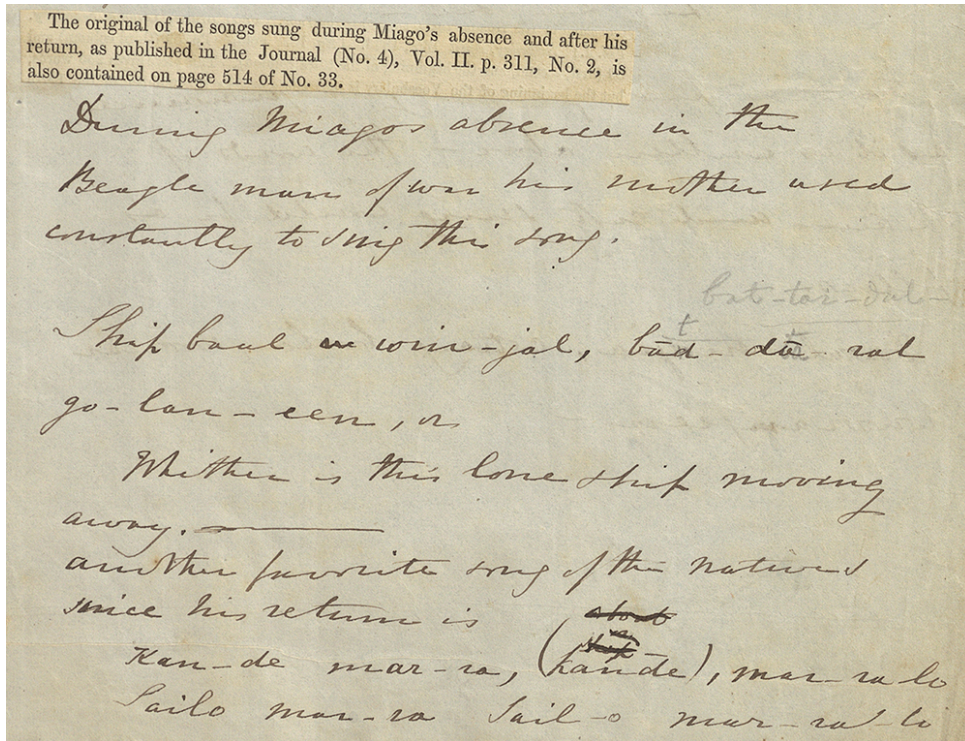 The original of the songs sung during Miago's absence and after his
return, as published in the Journal (No. 4), Vol. II. p. 311, No. 2, is
also contained on page 514 of No. 33.
During Miagos absence in the
Beagle man of war his mother used
constantly to sing this song.
bat-tar-dal-
t
Ship baul win-jal, băd-dă ral
go-lan-een, or
Whither is this lone ship moving
away.
another favorite song of the natives
since his return is
Kan-de mar-ra, (kan de), mar-ra lo
Sailo mar-ra Sail-o mar-ra-lo